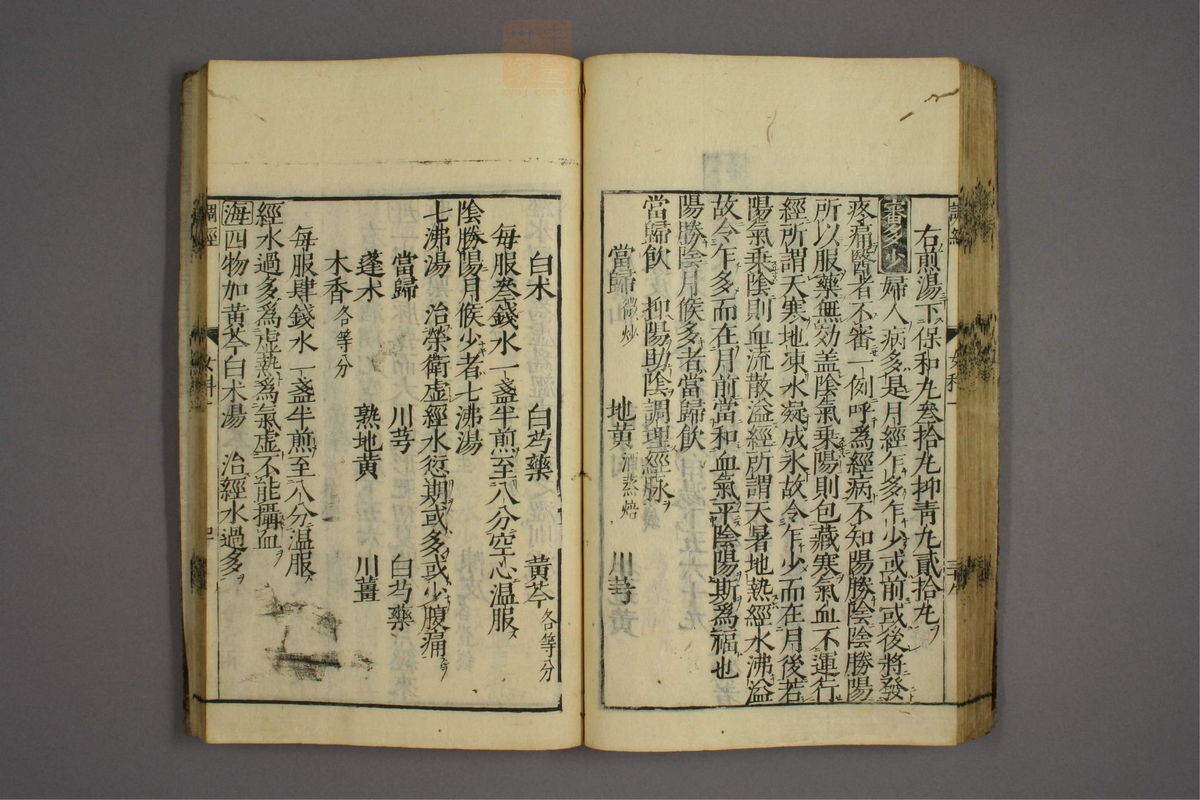 右煎湯下保和丸叁拾丸抑青丸貳拾丸
審多少 婦人病多是月經乍多乍少或前或後將發
疼痛醫者不審一例呼爲經病不知陽勝陰陰勝陽
所以服藥無効盖陰氣乗陽則包藏寒氣血不運行
經所謂天寒地凍水凝成氷故令乍少而在月後若
陽氣乗陰則血流散溢經所謂天暑地熱經水沸溢
故令乍多而在月前當和血氣平陰陽斯爲福也
陽勝陰月候多者當歸飲
當歸飲 抑陽助陰調理經脉
當歸微炒 地黄酒蒸焙 川芎
白术 白芍藥 黄芩各等分
每服叁錢水一盞半煎至八分空心温服
陰勝陽月候少者七沸湯
七沸湯 治榮衛虚經水愆期或多或少腹痛
當歸 川芎 白芍藥
蓬术 熟地黄 川薑
木香各等分
每服肆錢水一盞半煎至八分温服
經水過多爲虚熱爲氣虚不能攝血
海四物加黄芩白术湯 治經水過多
調經
女科一